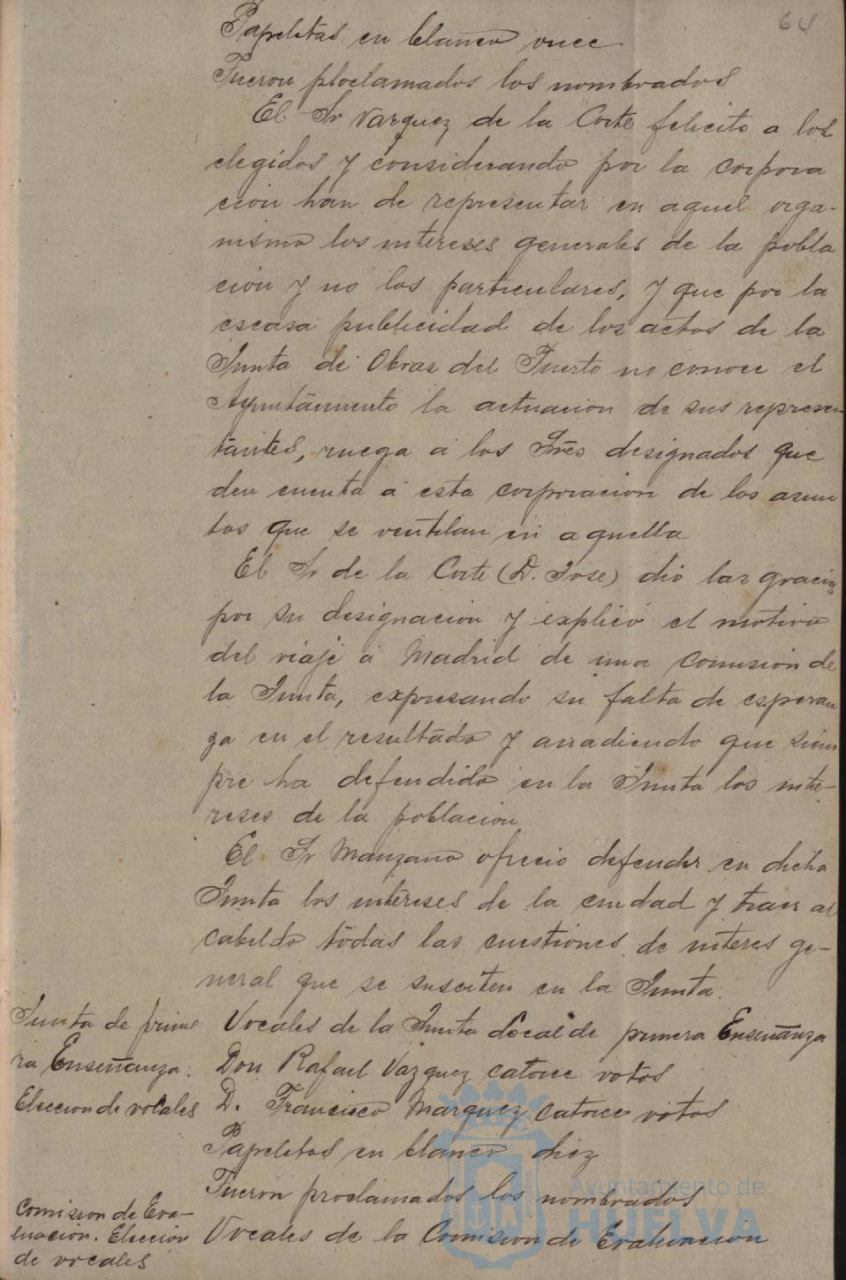 64
Papeletas en blanco once
Fueron ploclamados los nombrados
El Sr Vazquez de la Corte felicito a los
elegidos y considerando por la corpora
cion han de representar en aquel orga-
nismo los intereses generales de la pobla
cion y no los particulares, y que por la
escasa publicidad de los actos de la
Junta de Obras del Puerto no conoce el
Ayuntamiento la actuacion de sus represen
tantes, ruega a los Sres designados que
den cuenta a esta corporacion de los asun
tos que se ventilan en aquella
El Sr de la Corte (D. Jose) dio las gracias
por su designacion y explicó el motivo
del viaje a Madrid de una comision de
la Junta, expresando su falta de esperan
za en el resultado y anadiendo que siem
pre ha defendido en la Junta los inte-
reses de la poblacion
El Sr Manzano ofrecio defender en dicha
Junta los intereses de la ciudad y traer al
cabildo todas las cuestiones de interes ge-
neral que se susciten en la Junta.
Junta de prime
ra Enseñanza.
Eleccion de vocales
Vocales de la Junta local de primera Enseñanza
Don Rafael Vazquez catorce votos
D. Francisco Marquez catorce votos
Papeletas en blanco diez
Fueron proclamados los nombrados
Comision de Eva-
luacion. Eleccion
de vocales
Vocales de la Comision de Evaluacion
Ayuntamiento de
HUELVA